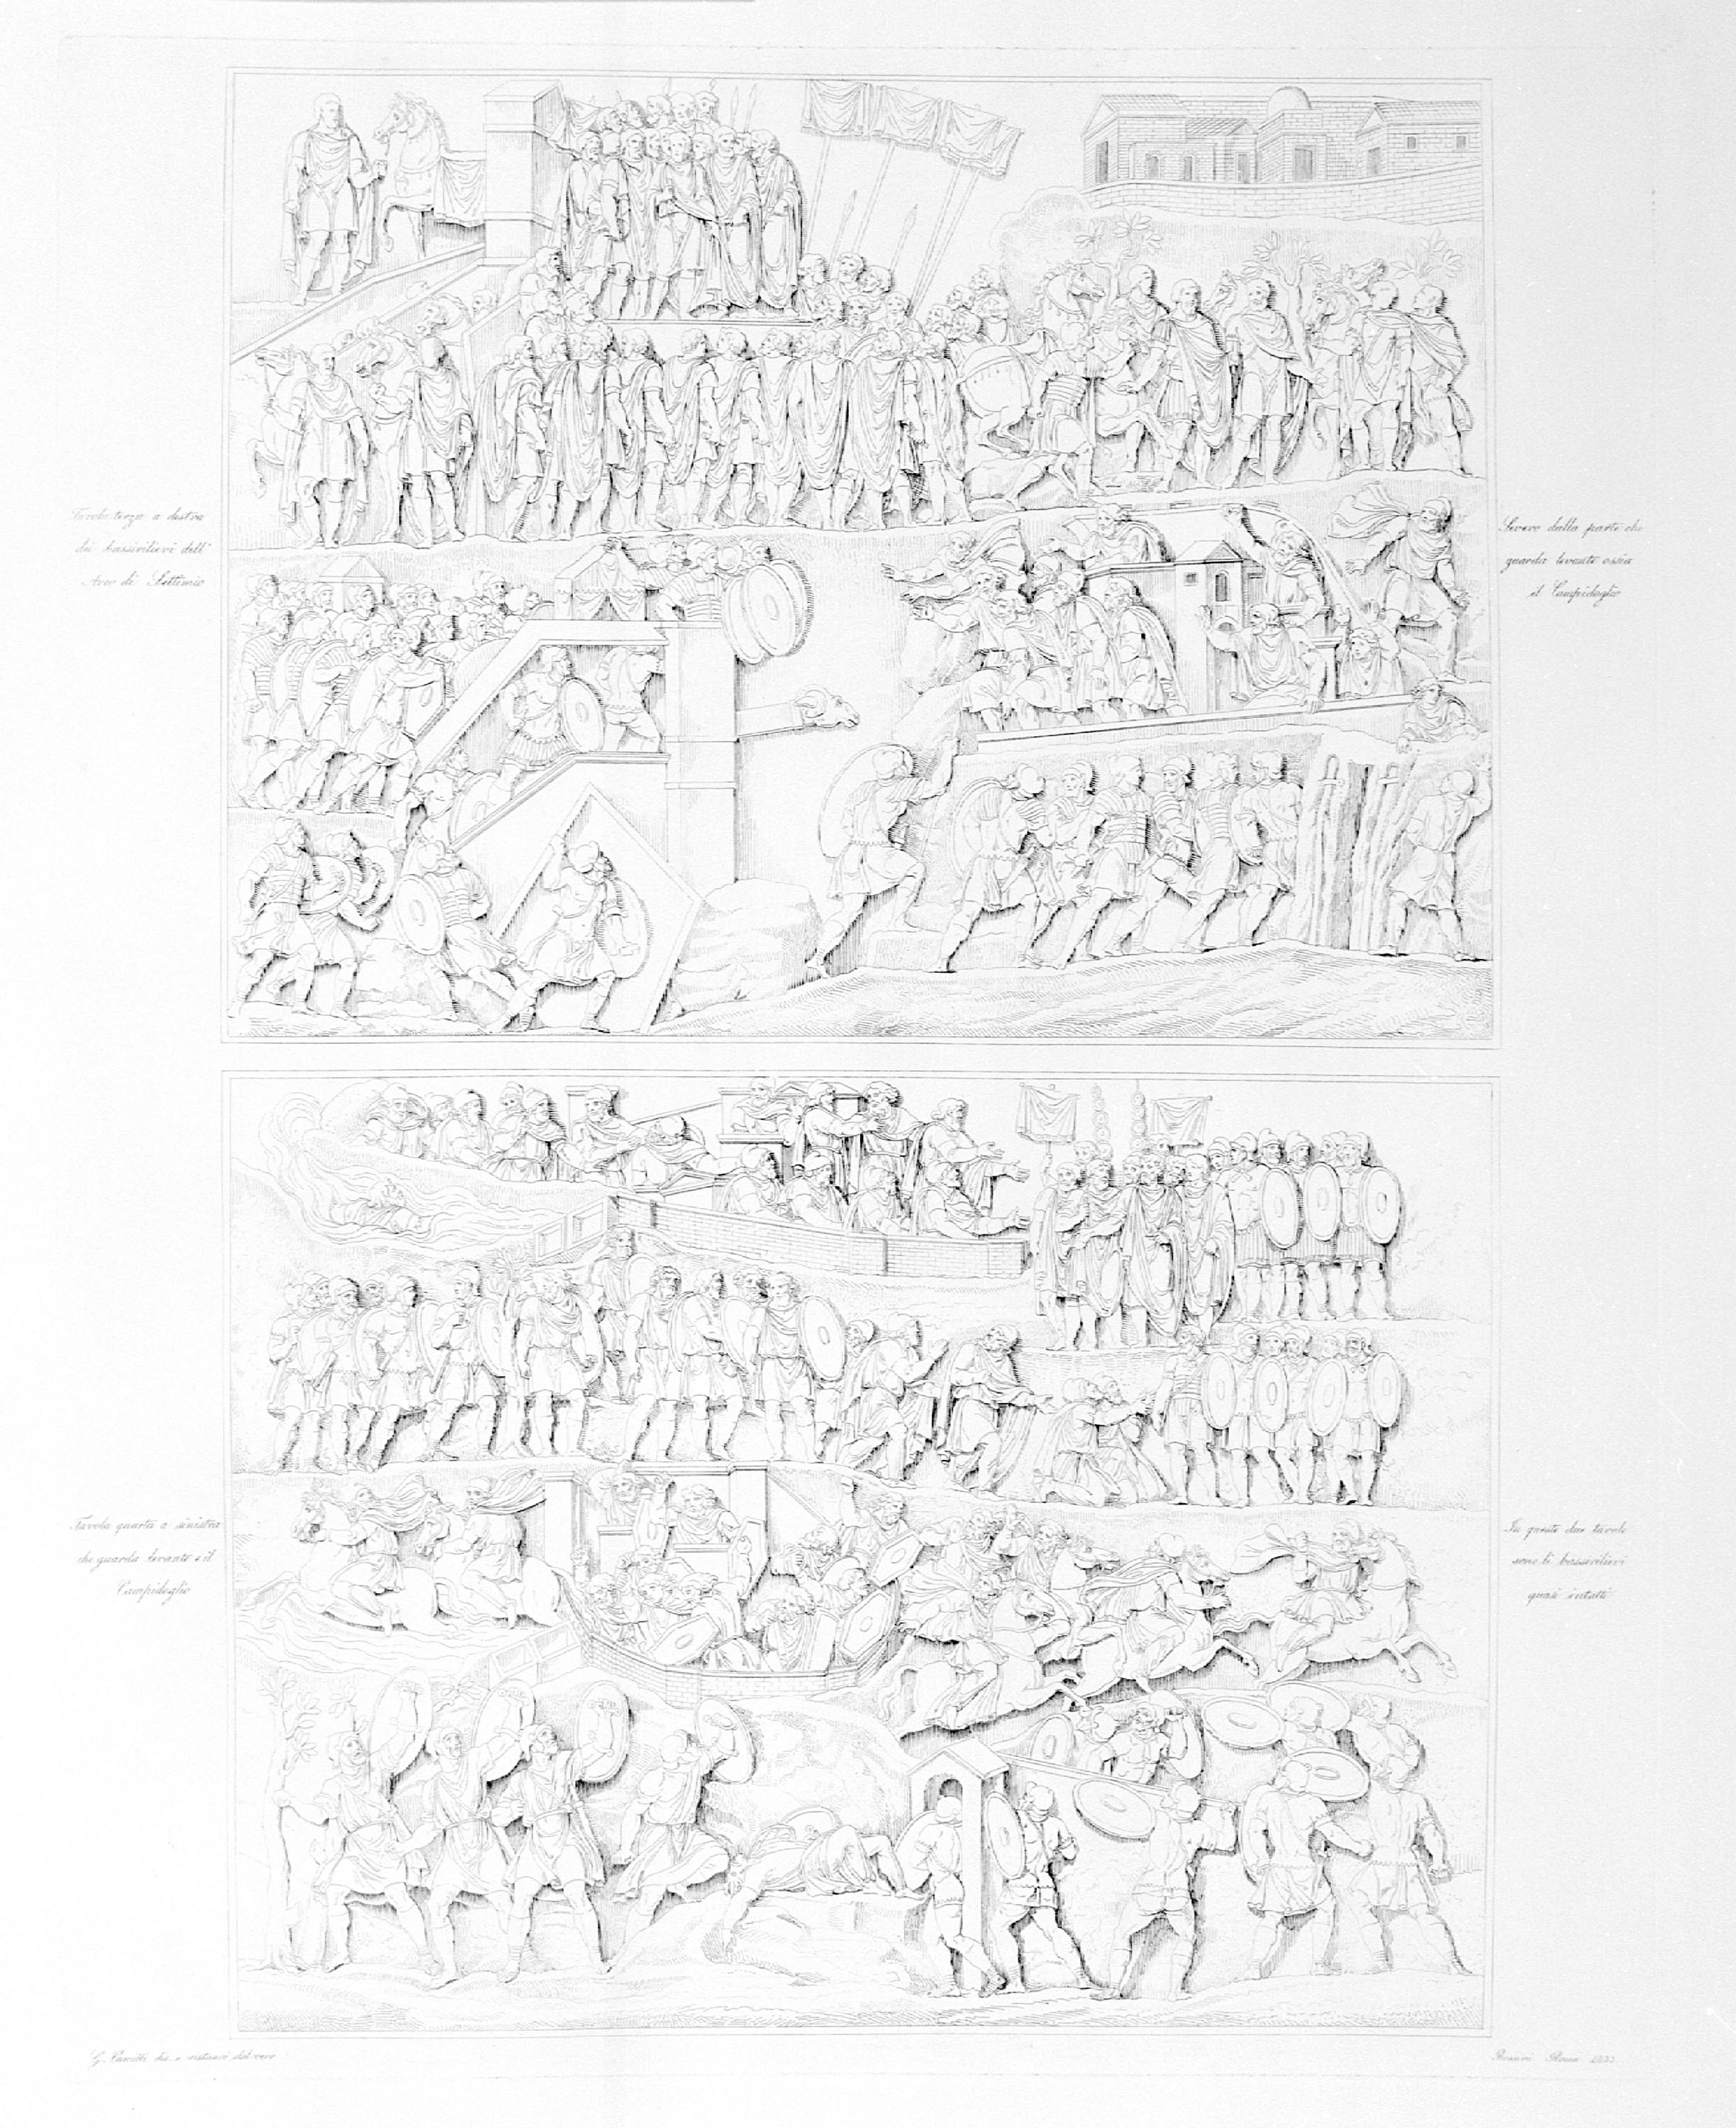 Tavola terza a destra
dei bassirilievi dell'
Arco di Settimio
Severo dalla parte che
guarda levante ossia
il Campidoglio
Tavola quarta a sinistra
che guarda levante e il
Campidoglio
In queste due tavole
sono li bassirilievi
quasi intatti
G. dis. e restaurò dal vero
Rossini Roma